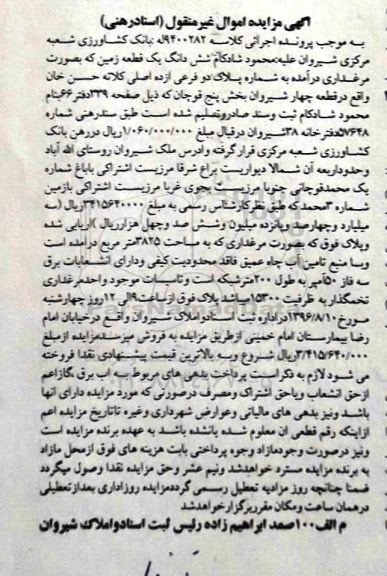 آگهی مزایده اموال غیرمنقول (اسنادرهنی)
به موجب پرونده اجرائی کلاسه ۹۴۰۰۲۸۲له:بانک کشاورزی شعبه
مرکزی شیروان علیه:محمود شادکام شش دانگ یک قطعه زمین که بصورت
مرغداری درآمده به شماره پلاک دو فرعی ازده اصلی کلاته حسن خان
واقع درقطعه چهار شیروان بخش پنج قوچان که ذیل صفحه ۳۳۹دفتر۶۶بنام
محمود شادکام ثبت وسند صادروتسلیم شده است طبق سندرهنی شماره
۵۷۶۴۸دفترخانه ۳۸شیروان درقبال مبلغ ۱/۰۶۰/۰۰۰/۰۰۰ریال دررهن بانک
کشاورزی شعبه مرکزی قرار گرفته وآدرس ملک شیروان روستای الله آباد
وحدوداربعه آن شمالا دیواریست بزاغ شرقا مرزیست اشتراکی باباغ شماره
یک محمدقوچانی جنوبا مرزیست بجوی غربا مرزیست اشتراکی بازمین
شماره ۳محمدکه طبق نظرکارشناس رسمی به مبلغ ۳۴۱۵۶۴۰۰۰۰ریال (سه
میلیارد وچهارصد وپانزده میلیون وشش صد وچهل هزارریال )ارزیابی شده
وپلاک فوق که بصورت مرغداری که به مساحت ۳۸۲۵متر مربع درآمده است
وبا منبع تامین آب چاه عمیق فاقد محدودیت کیفی ودارای انشعابات برق
سه فاز ۵۰آمپر به طول ۲۰۰مترشبکه است وتاسیسات موجود واحدمرغداری
تخمگذار به ظرفیت ۱۵۳۰۰میباشد پلاک فوق ازساعت۹الی ۱۲روز چهارشنبه
مورخ۱۳۹۶/۸/۱۰دراداره ثبت اسنادواملاک شیروان واقع درخیابان امام
رضا بیمارستان امام خمینی ازطریق مزایده به فروش میرسدمزایده ازمبلغ
۳/۴۱۵/۶۴۰/۰۰۰ریال شروع وبه بالاترین قیمت پیشنهادی نقدا فروخته
می شود لازم به ذکراست پرداخت بدهی های مربوط به آب برق گازاعم
ازحق انشعاب ویاحق اشتراک ومصرف درصورتی که مورد مزایده دارای آنها
باشد ونیز بدهی های مالیاتی وعوارض شهرداری وغیره تاتاریخ مزایده اعم
ازاینکه رقم قطعی آن معلوم شده یانشده باشد به عهده برنده مزایده است
ونیز درصورت وجودمازاد وجوه پرداختی بابت هزینه های فوق ازمحل مازاد
به برنده مزایده مسترد خواهدشد ونیم عشر وحق مزایده نقدا وصول میگردد
ضمنا چنانچه روز مزایده تعطیل رسمی گرددمزایده روزاداری بعدازتعطیلی
درهمان ساعت ومکان مقرربرگزارخواهدشد
م الف۱۰۰صمد ابراهیم زاده رئیس ثبت اسنادواملاک شیروان